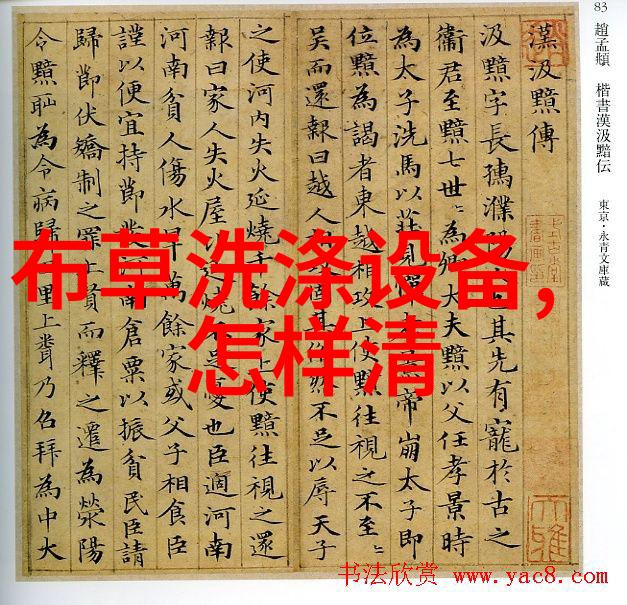 83 趙孟頫 楷書漢汲黯伝 東京・永青文庫蔵
漢汲黯傳
汲黯字長孺濮陽其先有寵於古之
衞君至黯七世〻為卿大夫黯以父任孝景時
為太子洗馬以莊見憚景帝崩太子即
位黯為謁者東越相攻上使黯往視之不至〻
吳而還報曰越人相攻固其俗然不足以辱天子
之使河内失火延燒千餘家上使黯往視之還
報曰家人失火屋比延燒不足憂也臣適河南
河南貧人傷水旱萬餘家或父子相食臣
謹以便宜持節發河南倉粟以振貧民臣請
歸節伏矯制之罪上賢而釋之遷為滎陽
令黯恥為令病歸里上乃召拜為中大
布草洗涤设备,
怎样清
书法欣赏 www.yac8.com